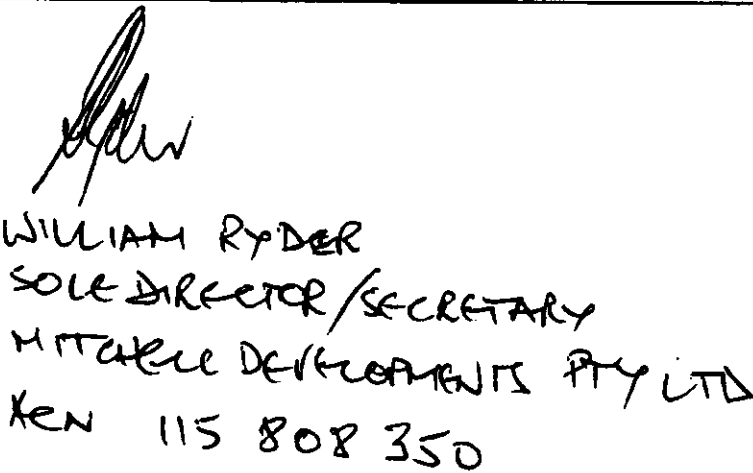 WILLIAM RYDER
SOLE DIRECTOR/SECRETARY
MITCHELL DEVELOPMENTS PTY LTD
ACN 115 808 350